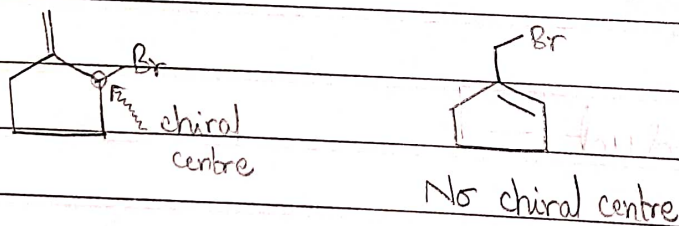 Br
chiral
centre
Br
No chiral centre